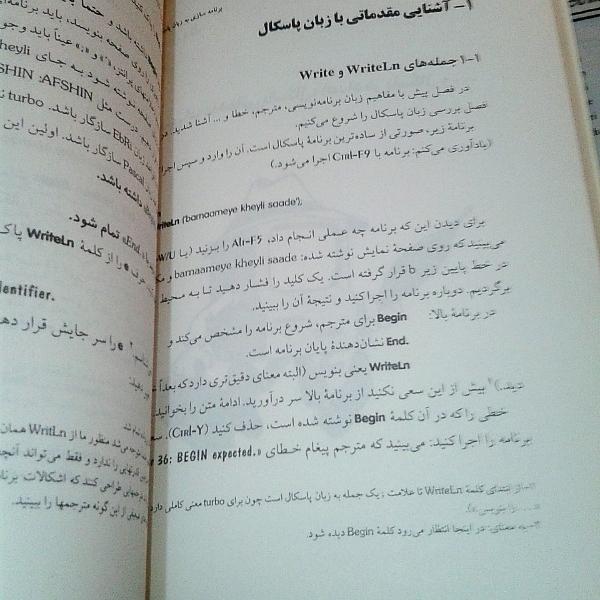 برنامه سازی به زبان
۱- آشنایی مقدماتی با زبان پاسکال
۱-۱ جمله‌های WriteLn و Write
در فصل پیش با مفاهیم زبان برنامه‌نویسی، مترجم، خطا و ... آشنا شدید. در
فصل بررسی زبان پاسکال را شروع می‌کنیم.
برنامهٔ زیر، صورتی از ساده‌ترین برنامهٔ پاسکال است. آن را وارد و سپس اجرا
(یادآوری می‌کنم: برنامه با Ctrl-F9 اجرا می‌شود.)
WriteLn ('barnaameye kheyli saade');
برای دیدن این که برنامه چه عملی انجام داد، Alt-F5 را بزنید (یا W/U
می‌بینید که روی صفحهٔ نمایش نوشته شده: barnaameye kheyli saade و
در خط پایین زیر b قرار گرفته است. یک کلید را فشار دهید تا به محیط
برگردیم. دوباره برنامه را اجرا کنید و نتیجهٔ آن را ببینید.
در برنامهٔ بالا: Begin برای مترجم، شروع برنامه را مشخص می‌کند و
End. نشان‌دهندهٔ پایان برنامه است.
WriteLn یعنی بنویس (البته معنای دقیق‌تری دارد که بعداً
بیش از این سعی نکنید از برنامهٔ بالا سر درآورید. ادامهٔ متن را بخوانید
خطی را که در آن کلمهٔ Begin نوشته شده است، حذف کنید (Ctrl-Y).
برنامه را اجرا کنید: می‌بینید که مترجم پیغام خطای «36: BEGIN expected.
ابتدای کلمهٔ WriteLn تا علامت ; یک جمله به زبان پاسکال است چون برای turbo معنی کاملی دارد
در اینجا انتظار می‌رود کلمهٔ Begin دیده شود.
باشد و حتماً
روی صفحه بنویسد، باید برنامه
عیناً باید
نوشته شود به جای kheyli
درست مثل AFSHIN
سازگار باشد. turbo
Pascal سازگار باشد. اولین این
داشته باشد.
End» تمام شود.
حرف e را از کلمهٔ WriteLn پاک
identifier.
e را سر جایش قرار دهید
منظور ما از WritLn همان
را ندارد و فقط می‌تواند
طراحی کنند که اشکالات
از این گونه مترجمها را ببینید.